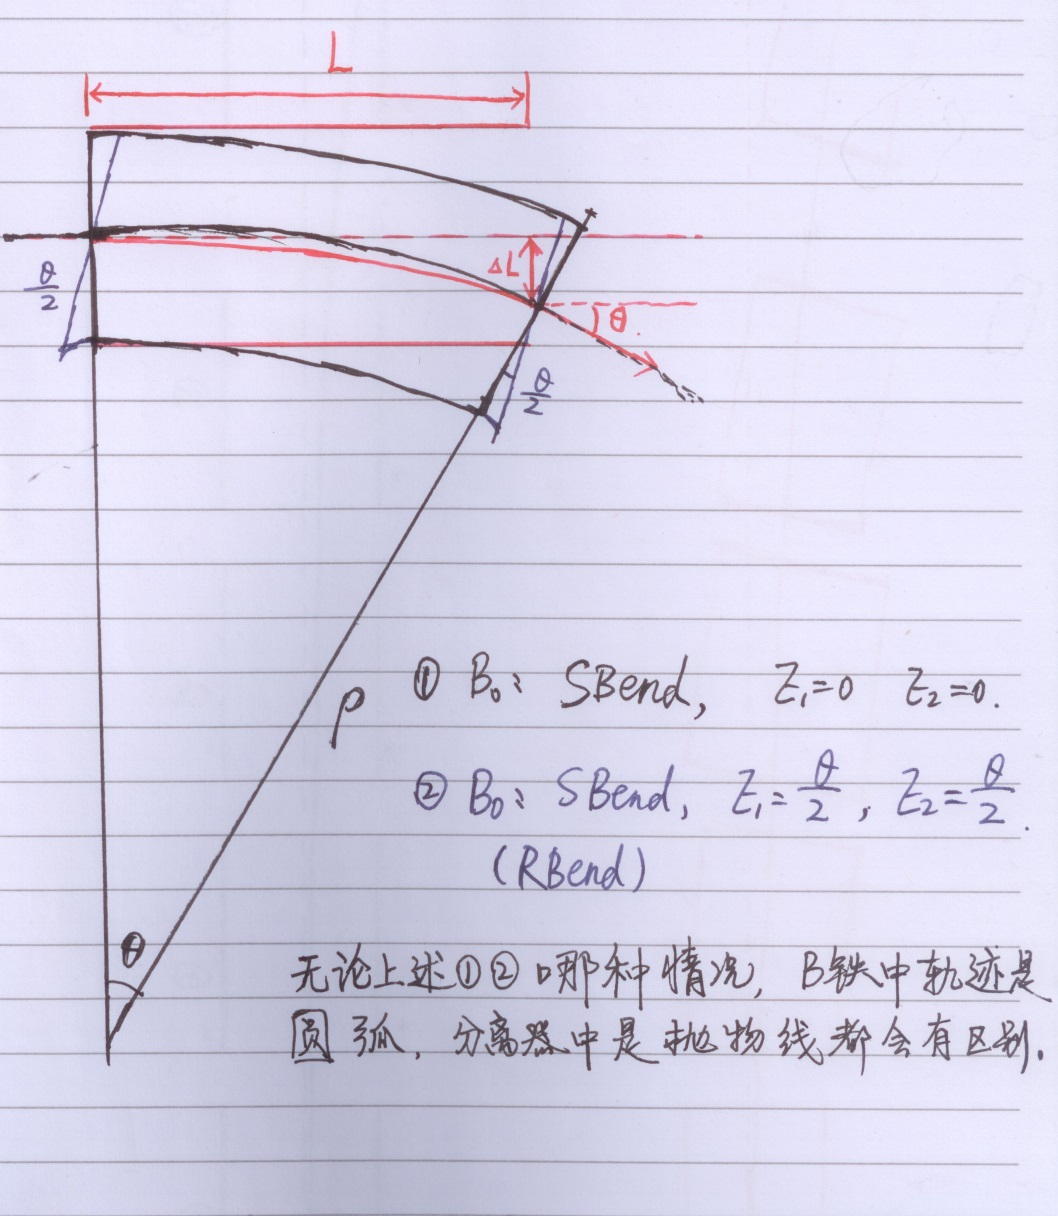 L
ΔL
θ
θ/2
θ/2
ρ
① B₀: SBend, Z₁=0 Z₂=0.
② B₀: SBend, Z₁=θ/2, Z₂=θ/2.
(RBend)
θ
无论上述①②哪种情况, B铁中轨迹是
圆弧, 分离器中是抛物线都会有区别.